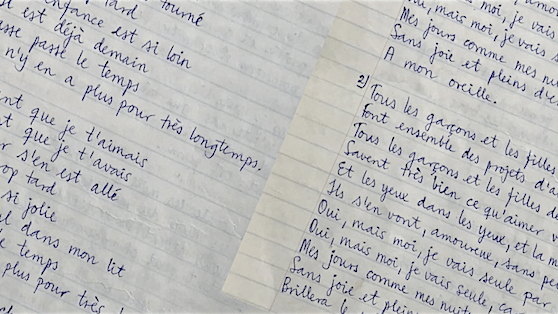 tard
tourné
enfance est si loin
est déjà demain
passe le temps
n'y en a plus pour très longtemps.
que je t'aimais
que je t'avais
s'en est allé
trop tard
si jolie
dans mon lit
temps
plus pour très
moi, je vais
Oui, mais moi, je vais
Mes jours comme mes nuits
Sans joie et pleins d'
A mon oreille.
2) Tous les garçons et les filles
Font ensemble des projets d'a
Tous les garçons et les filles de
Savent très bien ce qu'aimer v
Et les yeux dans les yeux, et la m
Ils s'en vont, amoureux, sans peu
Oui, mais moi, je vais seule par
Oui, mais moi, je vais seule, ca
Mes jours comme mes nuits
Sans joie et plein
Brillera le